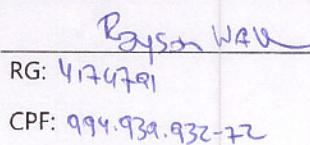 Rayson
RG: 4174791
CPF: 994.939.932-72